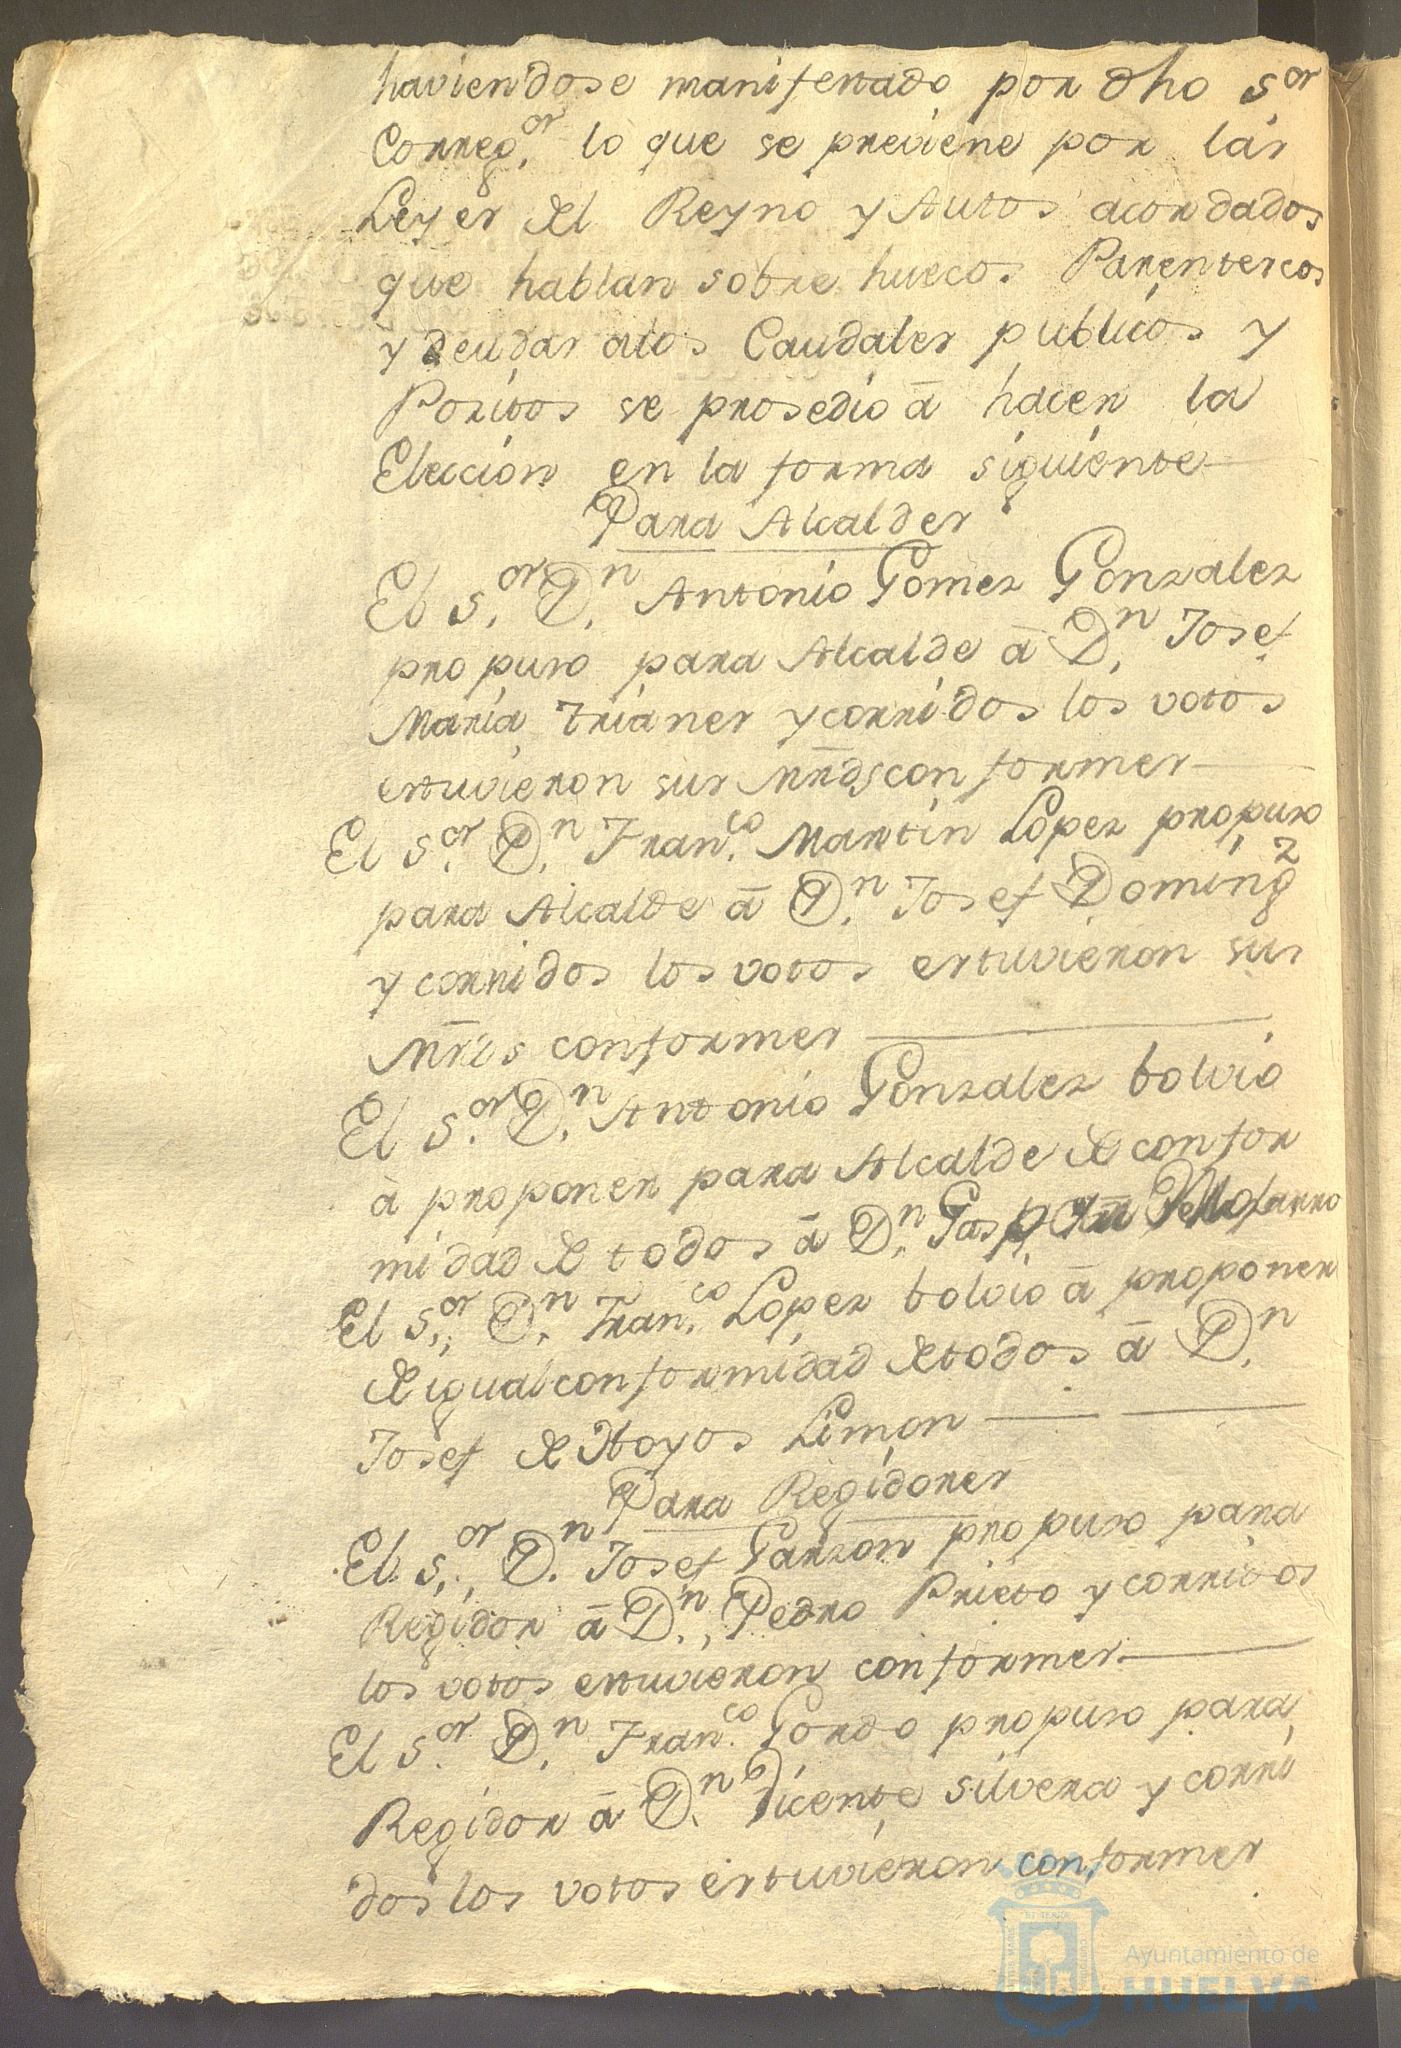 haviendose manifestado por dho Sor
Corregor. lo que se previene por las
Leyes del Reyno y Autos acordados
que hablan sobre huecos. Parentescos
y deudas alos Caudales publicos y
Positos se prosedio â hacer la
Eleccion en la forma siguiente
Para Alcaldes
El Sor. Dn. Antonio Gomez Gonzalez
propuso para Alcalde â Dn. Josef
Maria Trianes y corridos los votos
estuvieron sus Mrds conformes
El Sor. Dn. Franco. Martin Lopez propuso
para Alcalde â Dn. Josef Domingz
y corridos los votos estuvieron sus
Mrds conformes
El Sor. Dn. Antonio Gonzalez bolvio
â proponer para Alcalde de confor
midad de todos â Dn. Gaspar
El Sor. Dn. Franco. Lopez bolvio â proponer
de igual conformidad de todos â Dn.
Josef de Hoyos Limon
Para Regidores
El Sor. Dn. Josef Garzon propuso para
Regidor â Dn. Pedro Prieto y corridos
los votos estuvieron conformes
El Sor. Dn. Franco. Gordo propuso para
Regidor â Dn. Vicente Silvera y corri
dos los votos estuvieron conformes
Ayuntamiento de
HUELVA